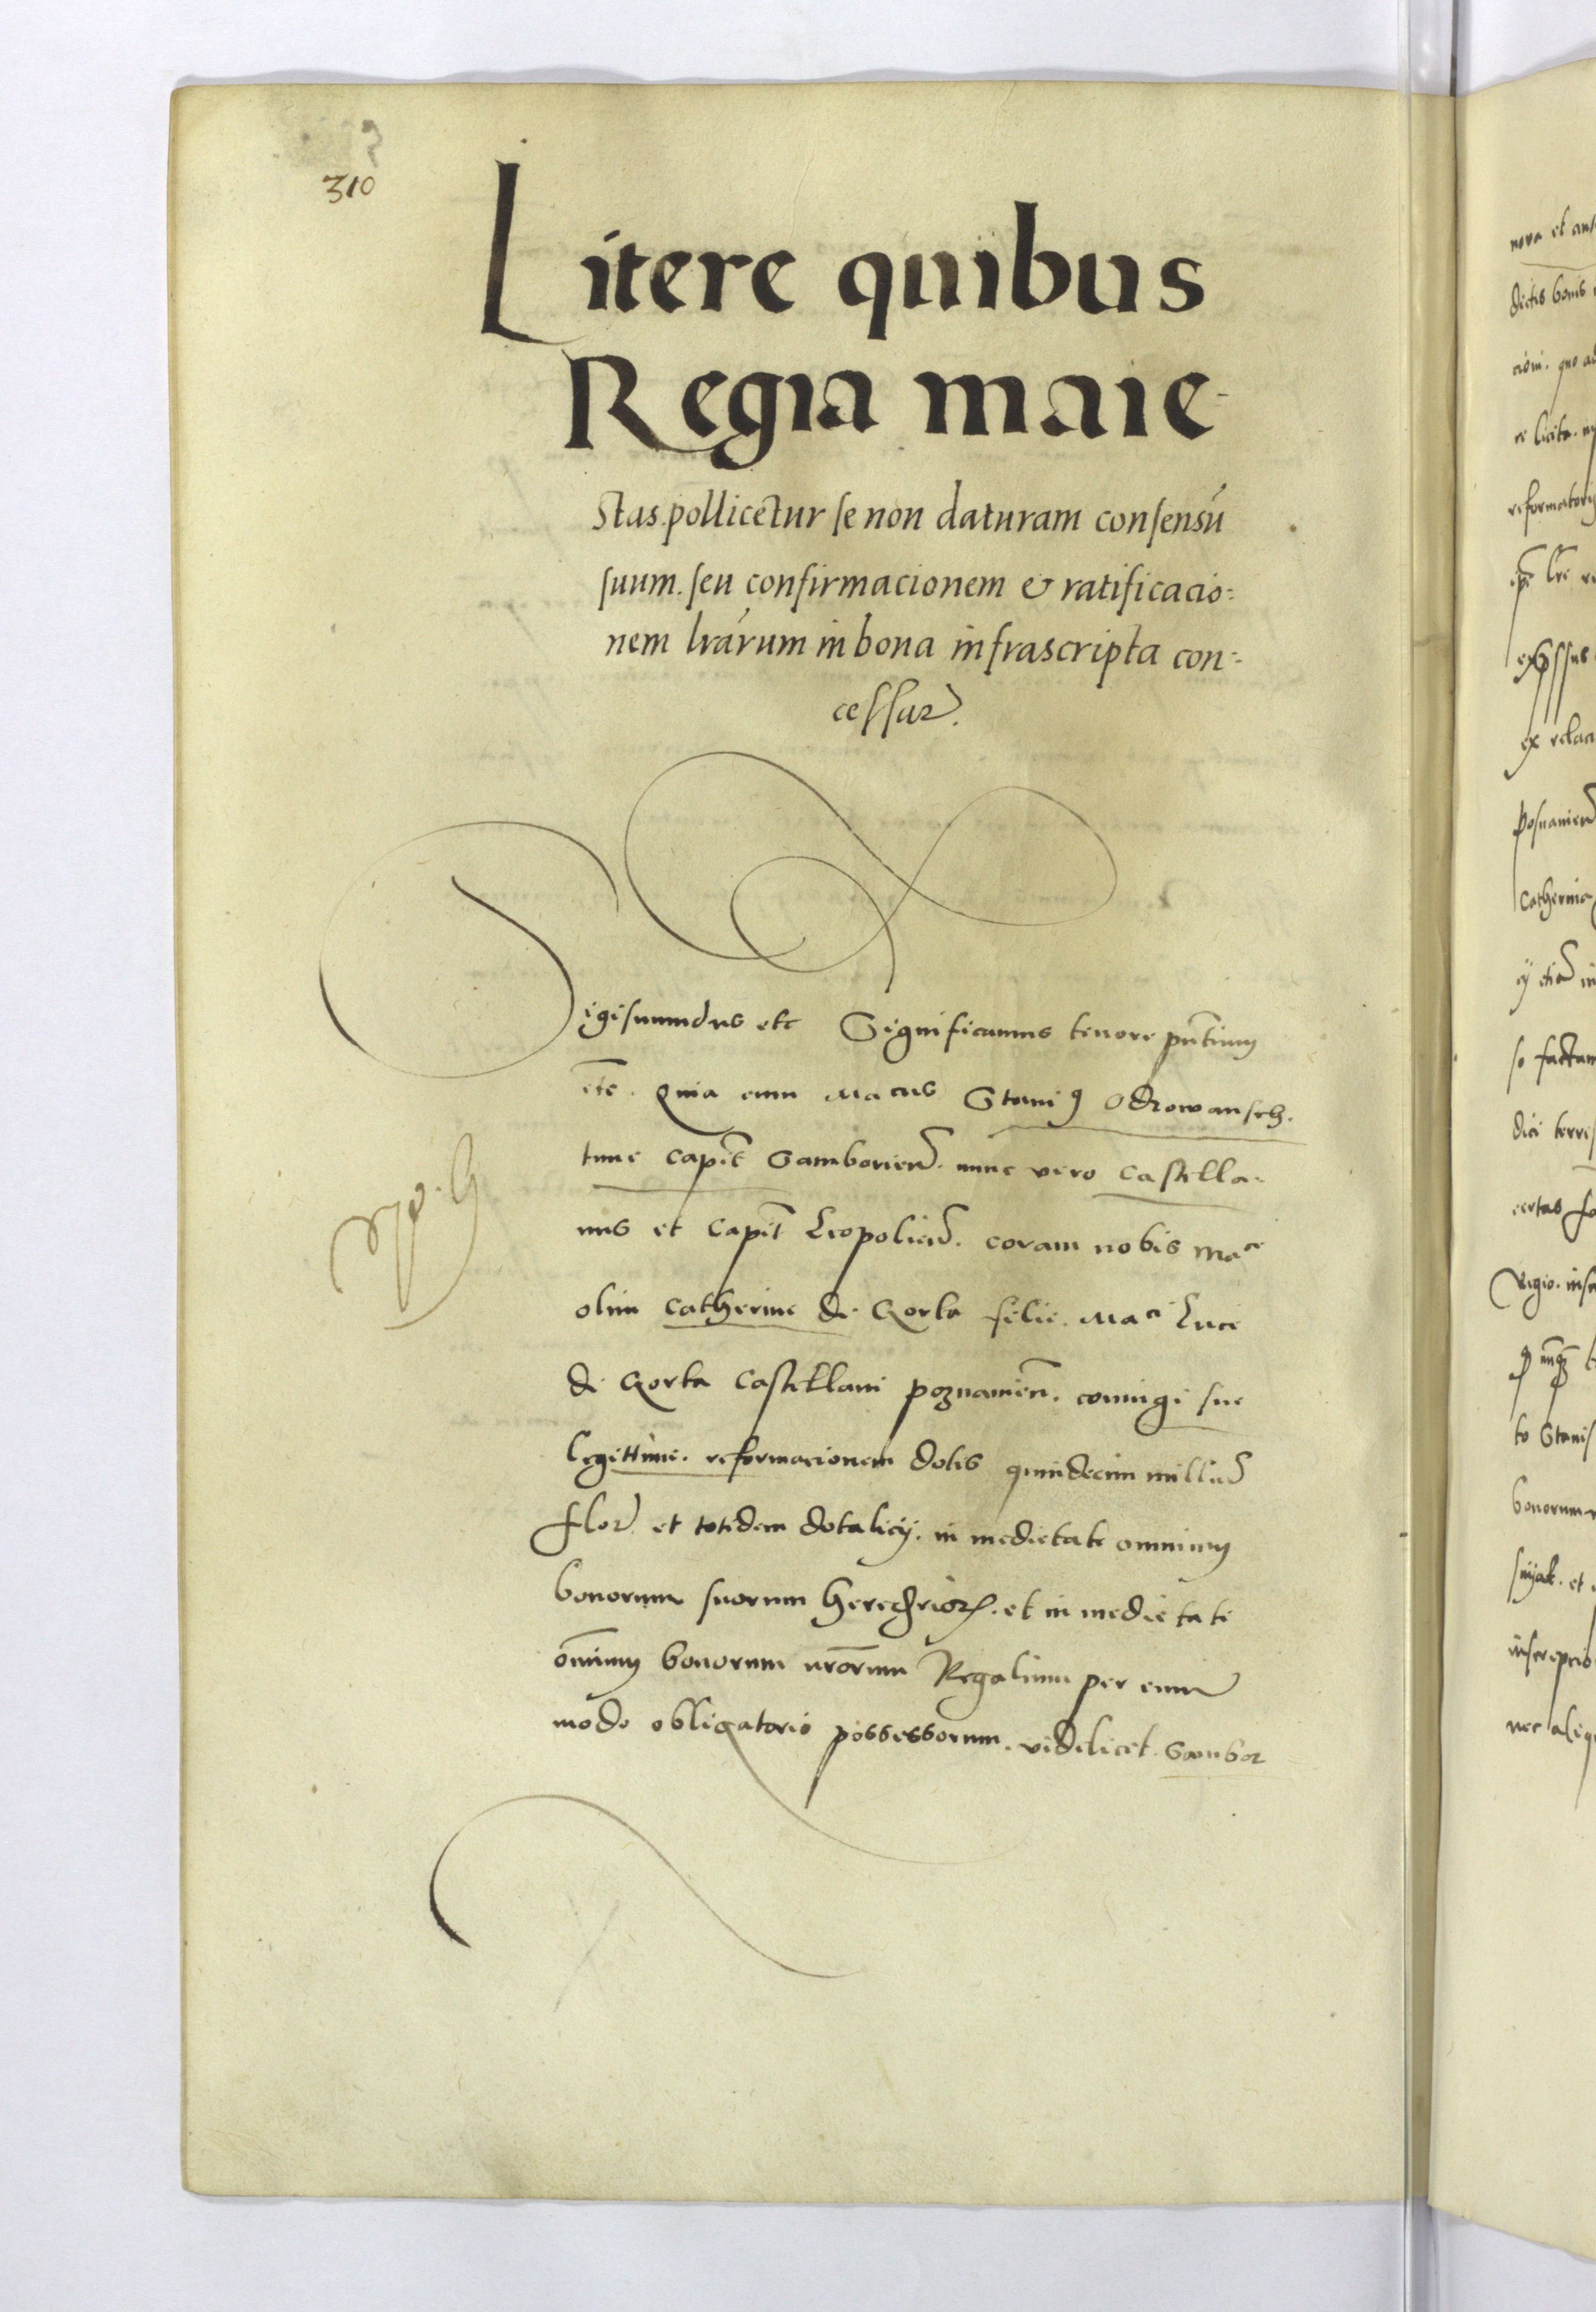 310
Litere quibus
Regia maie-
stas pollicetur se non daturam consensū
suum. seu confirmacionem & ratificacio=
nem lrārum in bona infrascripta con=
cessar.
Sigismundus etc Significamus tenore pn̄tium
etc. Quia cum Macus Staniꝰ Odrowansch.
tunc Capit̄ Samborien̄. nunc vero Castella-
nus et Capit̄ Leopolien̄. coram nobis Mace
olim Catherine de Gorka filie. Maci Luce
de Gorka Castellani poznanien̄. coniugi sue
legittime. reformacionem dotis quindecim milliū
flor̄. et totidem dotalicij. in medietate omnium
bonorum suorum hereditarioꝝ. et in medietate
om̄nium bonorum nrōrum Regalium per eum
modo obligatorio possessorum. videlicet. Sambor
nova et
dictis bonis
re licita.
ex
posnanien̄
Catherina
so factam
dici terres
certas
Regio.
to Stanis
bonorum
et
inscripcio
nec aliq